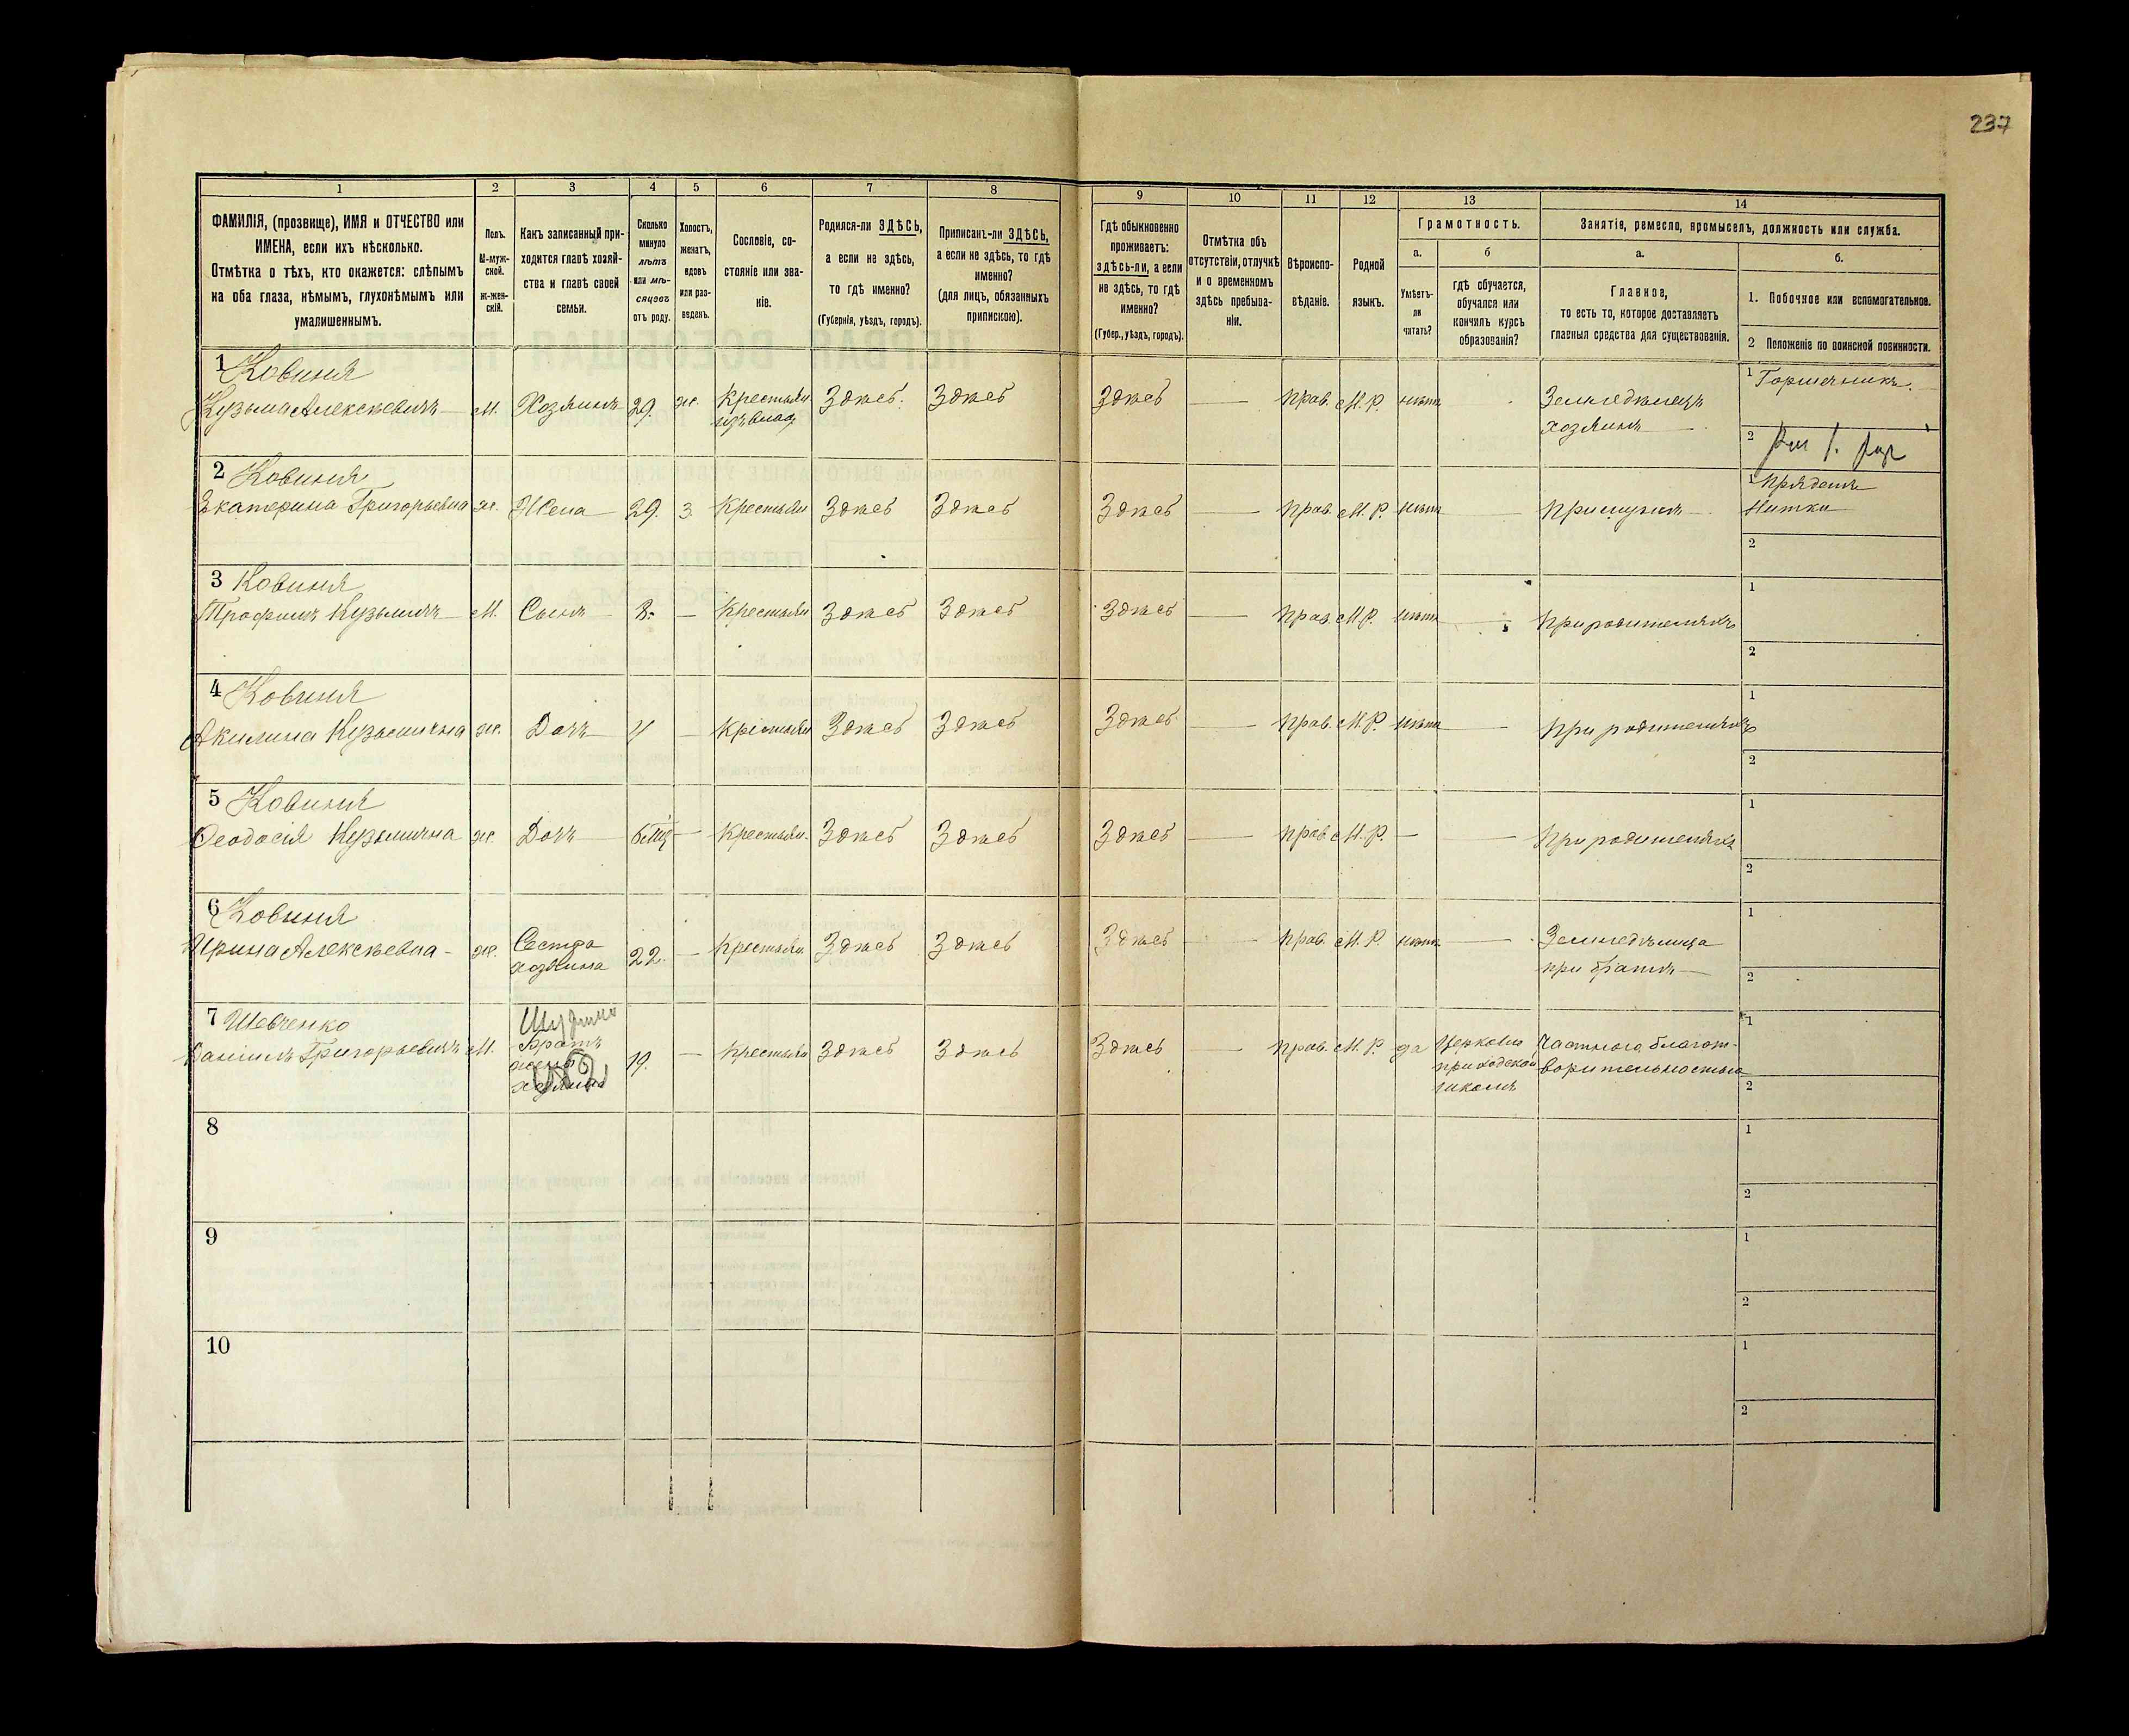 237
1 2 3 4 5 6 7 8 9 10 11 12 13 14
ФАМИЛІЯ, (прозвище), ИМЯ и ОТЧЕСТВО или
ИМЕНА, если ихъ нѣсколько.
Отмѣтка о тѣхъ, кто окажется: слѣпымъ
на оба глаза, нѣмымъ, глухонѣмымъ или
умалишеннымъ.
Полъ.
М-муж-
ской.
Ж-жен-
скій.
Какъ записанный при-
ходится главѣ хозяй-
ства и главѣ своей
семьи.
Сколько
минуло
лѣтъ
или мѣ-
сяцевъ
отъ роду.
Холостъ,
женатъ,
вдовъ
или раз-
веденъ.
Сословіе, со-
стояніе или зва-
ніе.
Родился-ли ЗДѢСЬ,
а если не здѣсь,
то гдѣ именно?
(Губернія, уѣздъ, городъ).
Приписанъ-ли ЗДѢСЬ,
а если не здѣсь, то гдѣ
именно?
(для лицъ, обязанныхъ
припискою).
Гдѣ обыкновенно
проживаетъ:
здѣсь-ли, а если
не здѣсь, то гдѣ
именно?
(Губер., уѣздъ, городъ).
Отмѣтка объ
отсутствіи, отлучкѣ
и о временномъ
здѣсь пребыва-
ніи.
Вѣроиспо-
вѣданіе.
Родной
языкъ.
Грамотность.
а.
Умѣетъ-
ли
читать?
б
гдѣ обучается,
обучался или
кончилъ курсъ
образованія?
Занятіе, ремесло, промыселъ, должность или служба.
а.
Главное,
то есть то, которое доставляетъ
главныя средства для существованія.
б.
1. Побочное или вспомогательное.
2 Положеніе по воинской повинности.
1 Ковиня 1 Горшечникъ.
Кузьма Алексѣевичъ М. Хозяинъ 29. ж. Крестьян. Здѣсь. Здѣсь Здѣсь — прав. М. Р. нѣтъ Земледѣлецъ
изъ влад. хозяинъ
2
2 Ковиня 1 Прядетъ
Екатерина Григорьевна ж. Жена 29. З. Крестьян Здѣсь Здѣсь Здѣсь — прав. М. Р. нѣтъ — при мужѣ — Нитки
2
3 Ковиня 1
Трофимъ Кузьмичъ М. Сынъ 8. — Крестьян Здѣсь Здѣсь Здѣсь — прав. М. Р. нѣтъ — при родителяхъ
2
4 Ковиня 1
Акилина Кузьминична ж. Дочь 4 — Крестьян Здѣсь Здѣсь Здѣсь — прав. М. Р. нѣтъ — при родителяхъ
2
5 Ковиня 1
Ѳеодосія Кузьминична ж. Дочь — Крестьян. Здѣсь Здѣсь Здѣсь — прав. М. Р. — — при родителяхъ
2
6 Ковиня 1
Ирина Алексѣевна - ж. Сестра 22. — Крестьян. Здѣсь Здѣсь Здѣсь — прав. М. Р. нѣтъ — Земледѣлица
хозяина при братѣ —
2
7 Шевченко Шурин 1
Даніилъ Григорьевичъ М. Братъ 19. — Крестьян Здѣсь Здѣсь Здѣсь — прав. М. Р. да Церковно Частною благот-
жены приходской ворительностью
хозяина школѣ 2
8 1
2
9 1
2
10 1
2